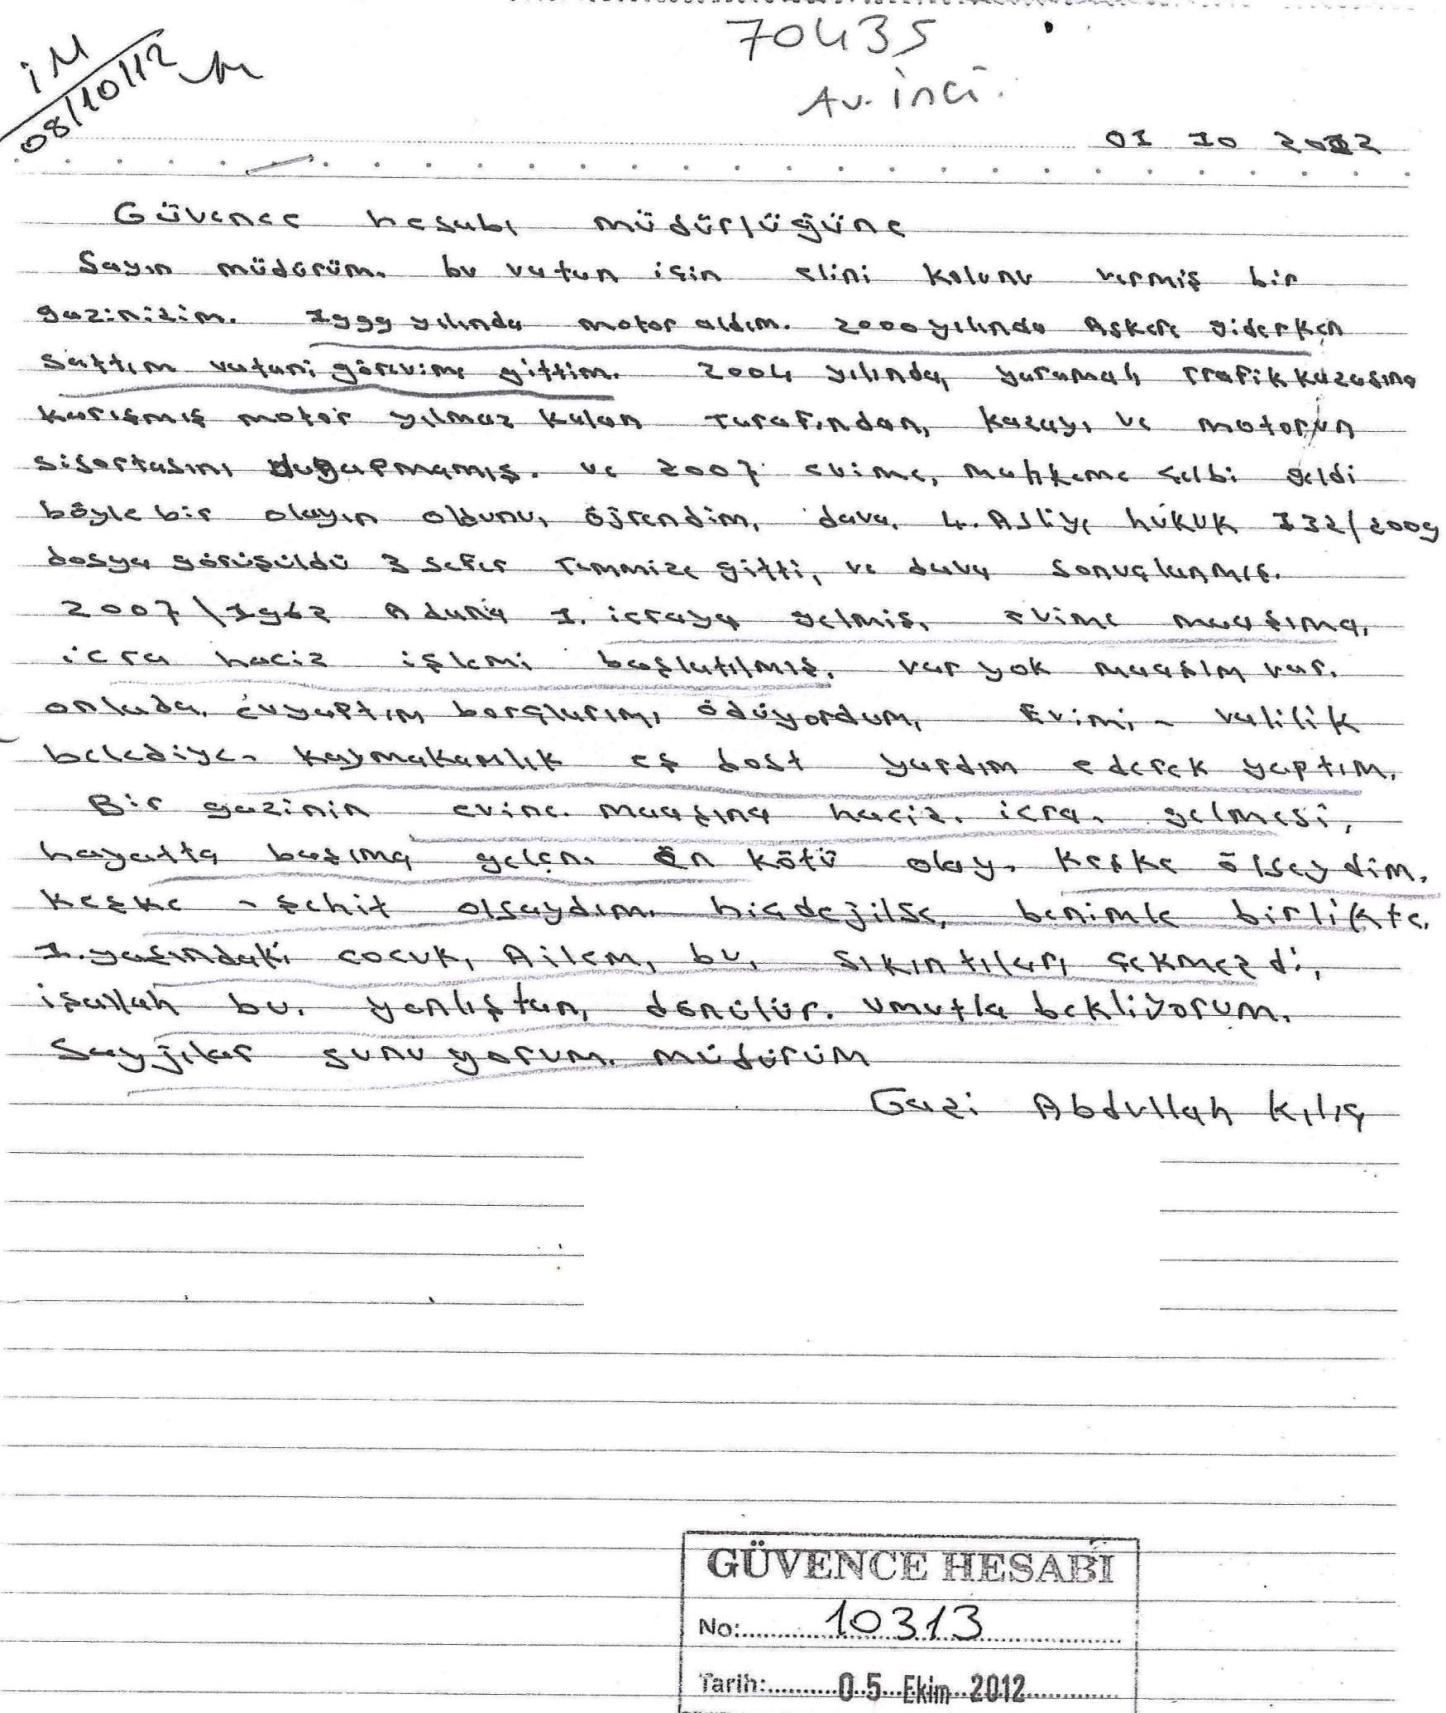 iM
08/10/12
70435
Av. inci.
01 10 2012
Güvence hesabı müdürlüğüne
Sayın müdürüm. bu vatan için elini kolunu vermiş bir
gazinizim. 1999 yılında motor aldım. 2000 yılında Askere giderken
Sattım vatani görevime gittim. 2004 yılında, yaramalı Trafik kazasına
karışmış motor yılmaz kalan Tarafından, kazayı ve motorun
sigortasını yapmamış. ve 2007 evime, mahkeme celbi geldi
böyle bir olayın oldunu, öğrendim, dava, 4. Asliye hukuk 132/2009
dosya görüşüldü 3 sefer Temmize gitti, ve dava sonuçlanmış.
2007\1962 Adana 1. icraya gelmiş, evime maaşıma,
icra haciz işlemi başlatılmış, var yok maaşım var.
onlada, evyaptım borçlarımı ödüyordum, Evimi, - valilik
belediye- kaymakamlık eş dost yardım ederek yaptım.
Bir gazinin evine. maaşına haciz. icra. gelmesi,
hayatta başıma gelen. En kötü olay. Keşke ölseydim.
Keşke - şehit olsaydım. hiçdeğilse, benimle birlikte.
1.yaşındaki cocuk, Ailem, bu, sıkıntıları çekmezdi,
işallah bu. yanlıştan, dönülür. umutla bekliyorum.
Sayğılar sunuyorum. müdürüm
Gazi Abdullah Kılıç
GÜVENCE HESABI
No:..........10313..........
Tarih:..........05 Ekim 2012..........